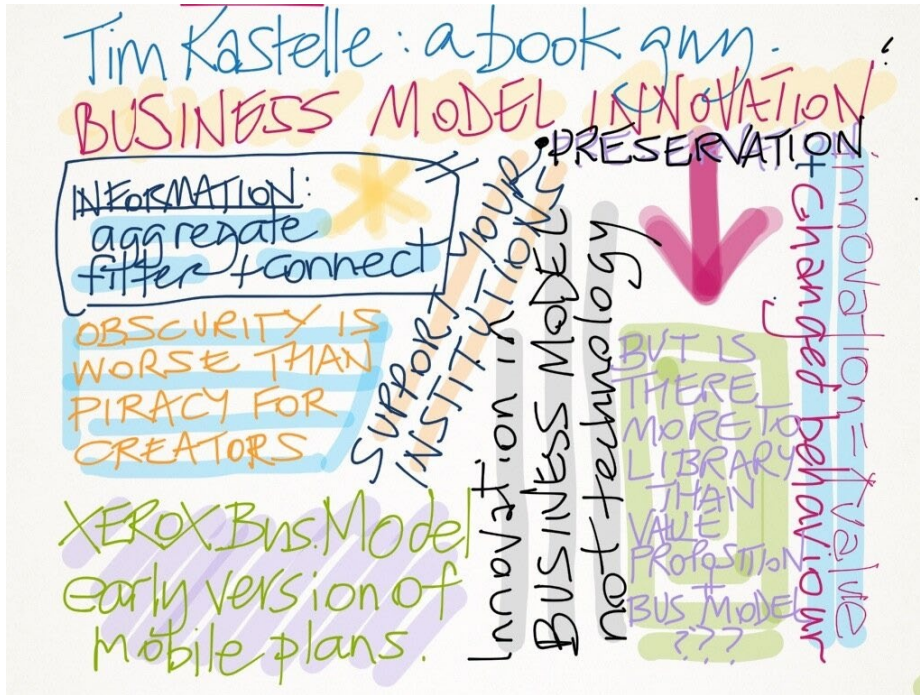 Tim Kastelle: a book guy.
BUSINESS MODEL INNOVATION
• PRESERVATION
INFORMATION:
aggregate
filter + connect
SUPPORT YOUR
INSTITUTIONS
OBSCURITY IS
WORSE THAN
PIRACY FOR
CREATORS
XEROX Bus. Model
early version of
mobile plans.
Innovation in
BUSINESS MODEL
not technology
BUT IS
THERE
MORE TO
LIBRARY
THAN
VALUE
PROPOSITION
+
BUS MODEL
???
innovation = value
+ changed behaviour